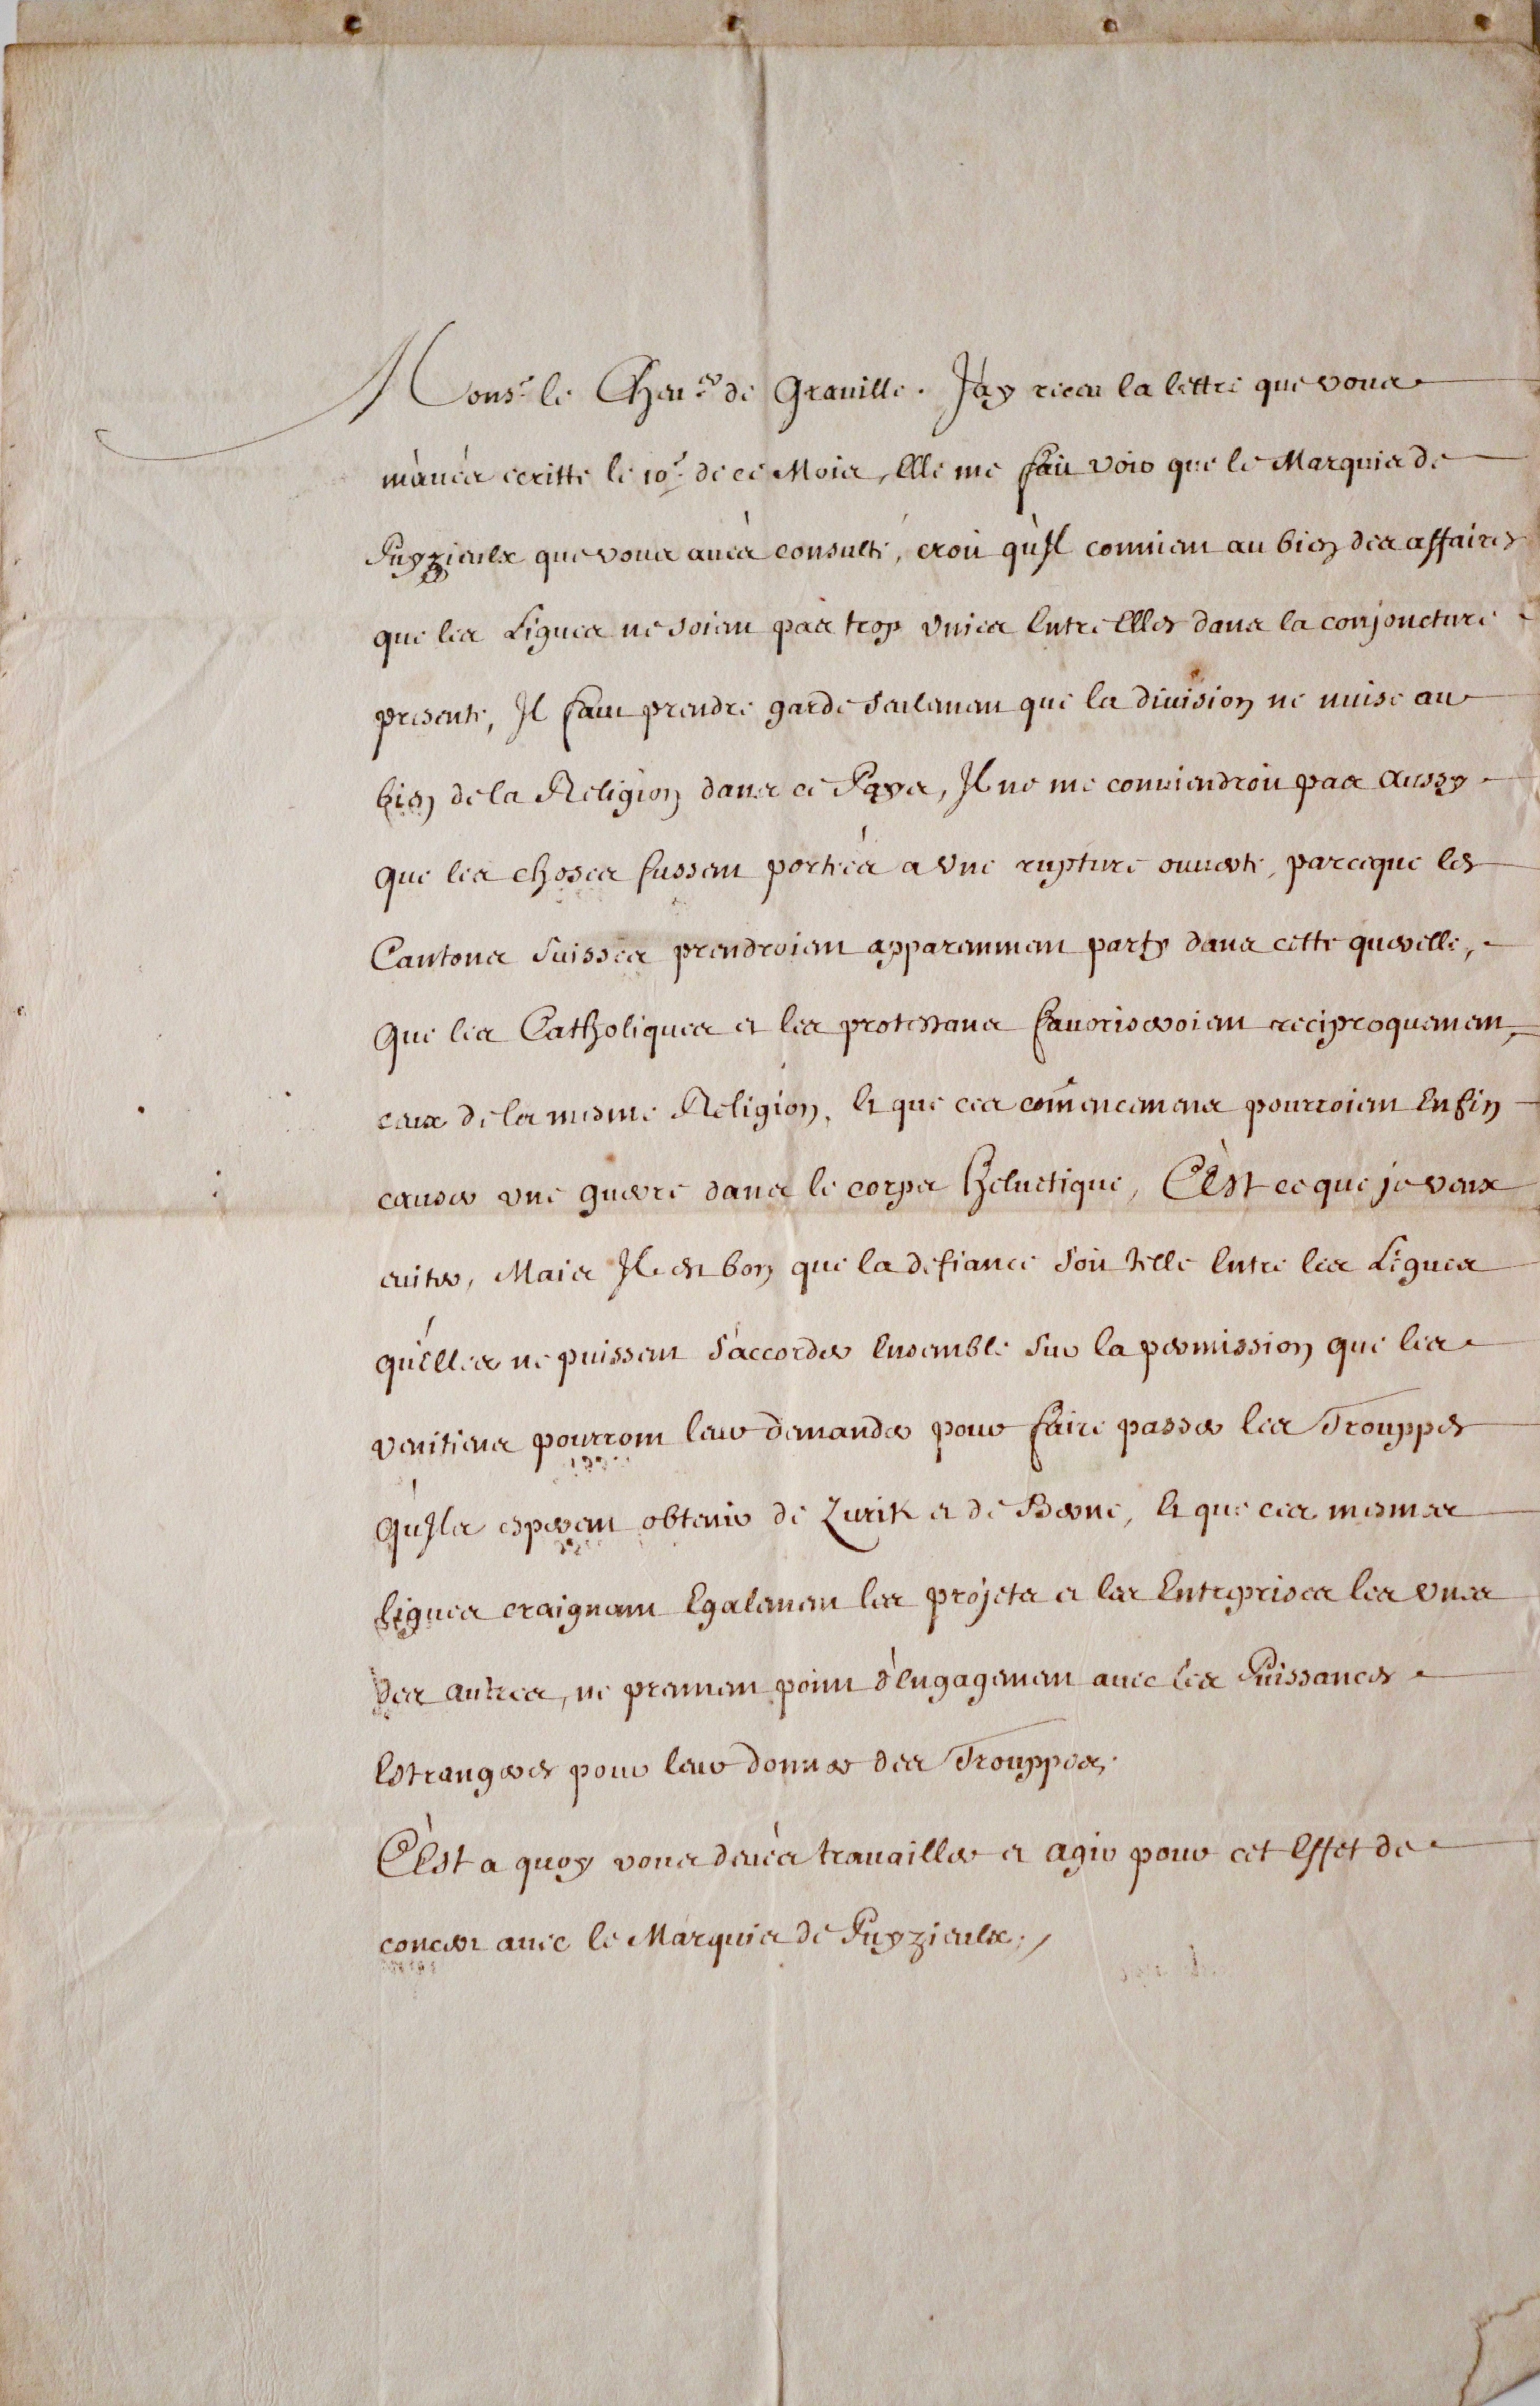 Mons.r le Chev.er de Graville. J'ay receu la lettre que vous
m'aués écritte le 10.e de ce Mois, Elle me fait voir que le Marquis de
Puyzieulx que vous aués consulté, croit qu'Il conuient au bien des affaires
que les Ligues ne soient pas trop vnies Entre Elles dans la conjoncture
presente, Il faut prendre garde seulement que la diuision ne nuise au
bien de la Religion dans ce Pays, Il ne me conuiendroit pas aussy
que les choses fussent portées a vne rupture ouuerte, parceque les
Cantons Suisses prendroient apparamment party dans cette querelle,
Que les Catholiques et les protestans fauoriseroient reciproquement,
ceux de leur mesme Religion, Et que ces com̃encemens pourroient Enfin
causer vne guerre dans le corps Heluetique, C'Est ce que je veux
euiter, Mais Il est bon que la defiance soit telle Entre les Ligues
qu'Elles ne puissent s'accorder Ensemble sur la permission que les
venitiens pourront leur demander pour faire passer les Trouppes
qu'Ils esperent obtenir de Zurik et de Berne, Et que ces mesmes
Ligues craignant Egalement les projets et les Entreprises les vnes
des autres, ne prennent point d'Engagement auec les Puissances
Estrangeres pour leur donner des Trouppes.
C'Est a quoy vous deués trauailler et agir pour cet Effet de
concert auec le Marquis de Puyzieulx./